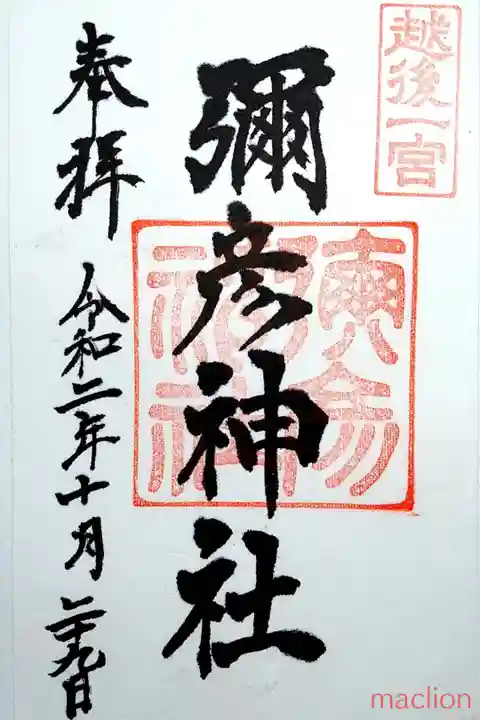 越後一宮
彌彦神社
奉拝
令和二年十月二十九日
maclion